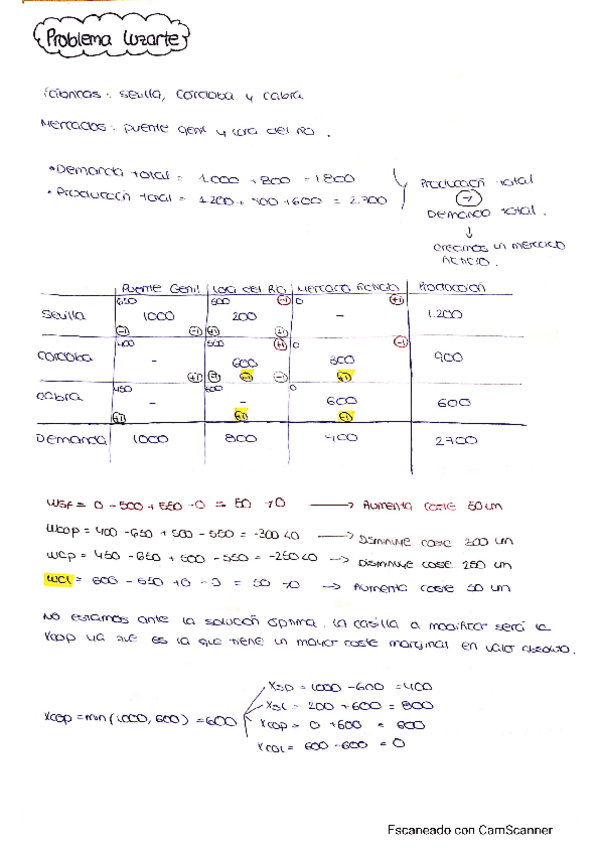 Problema Luzarte
Fábricas: Sevilla, Córdoba y Cabra
Mercados: Puente Genil y Lora del Río.
• Demanda total = 1.000 + 800 = 1800
• Producción total = 1.200 + 900 + 600 = 2.700
Producción total
Demanda total.
↓
creamos un mercado
ficticio.
Puente Genil Lora del Río Mercado ficticio Producción
650 600 -1 0 +1
Sevilla 1000 200 - 1.200
-1 -1 +1 +1
400 500 +1 0 -1
Córdoba - 600 300 900
+1 -1 -1 +1
450 600 0
Cabra - - 600 600
+1 +1 -1
Demanda 1000 800 900 2700
WSF = 0 - 500 + 550 - 0 = 50 >0 → Aumenta coste 50 um
WCOP = 400 - 650 + 500 - 550 = -300 <0 → Disminuye coste 300 um
WCP = 450 - 650 + 500 - 550 = -250 <0 → Disminuye coste 250 um
WCL = 600 - 550 + 0 - 0 = 50 >0 → Aumenta coste 50 um
No estamos ante la solución óptima. La casilla a modificar será la
Xcop ya que es la que tiene un mayor coste marginal en valor absoluto.
Xcop = min (1000, 600) = 600
XSP = 1000 - 600 = 400
XSL = 200 + 600 = 800
Xcop = 0 + 600 = 600
XCOL = 600 - 600 = 0
Escaneado con CamScanner